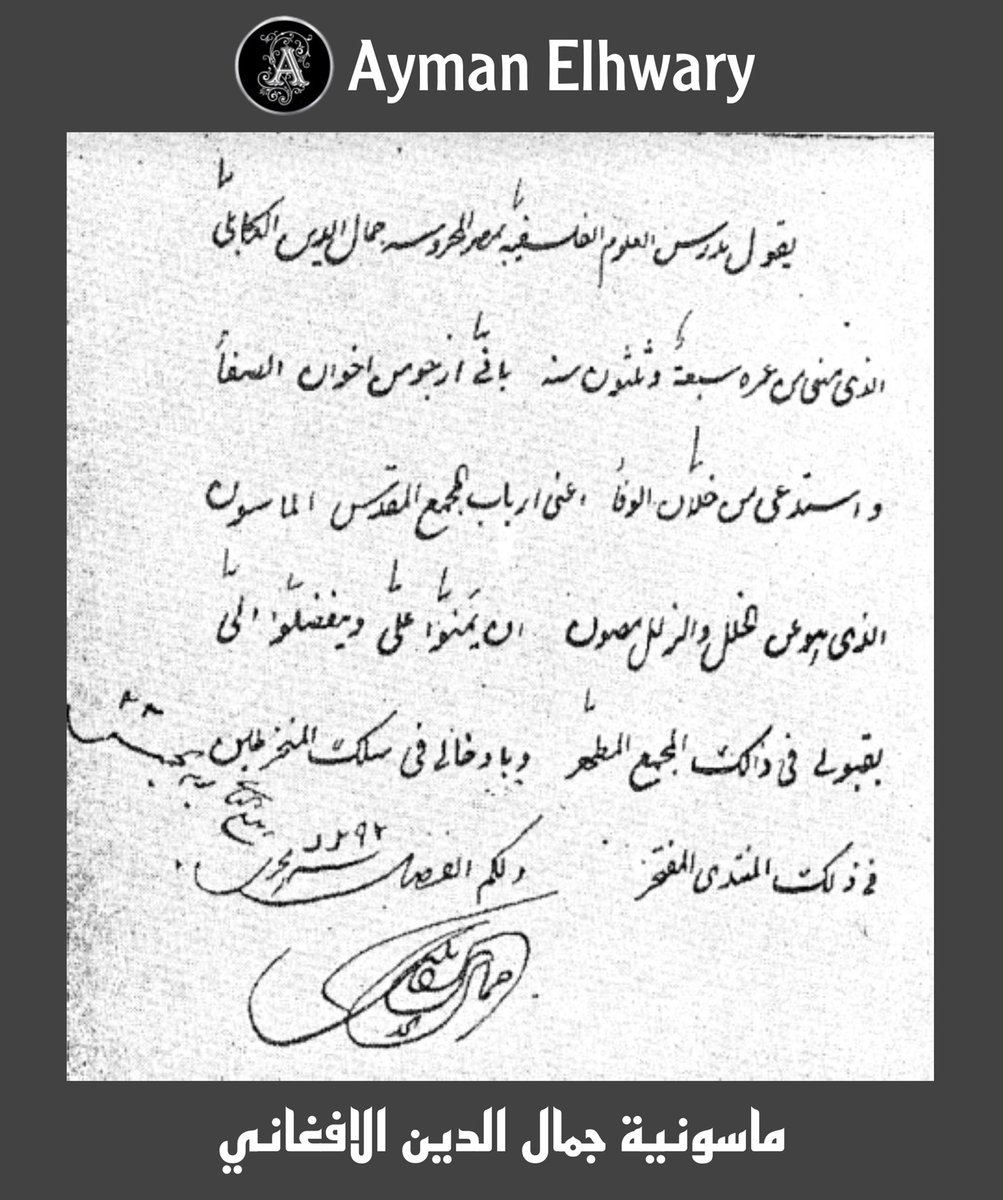 Ayman Elhwary
يقول مدرس العلوم الفلسفية بمصر المحروسه جمال الدين الكابلي
الذى مضى من عمره سبعة وثلثون سنه بانى ارجو من اخوان الصفأ
واستدعى من خلان الوفأ اعنى ارباب المجمع المقدس الماسون
الذى هو عن الخلل والزلل مصون ان يمنوا على ويتفضلوا الى
بقبولى فى ذالك المجمع المطهر وبادخالى فى سلك المنخرطين
فى ذلك المنتدى المفتخر ولكم الفضل
ربيع الثانى
١٢٩٢
جمال الدين
ماسونية جمال الدين الافغاني